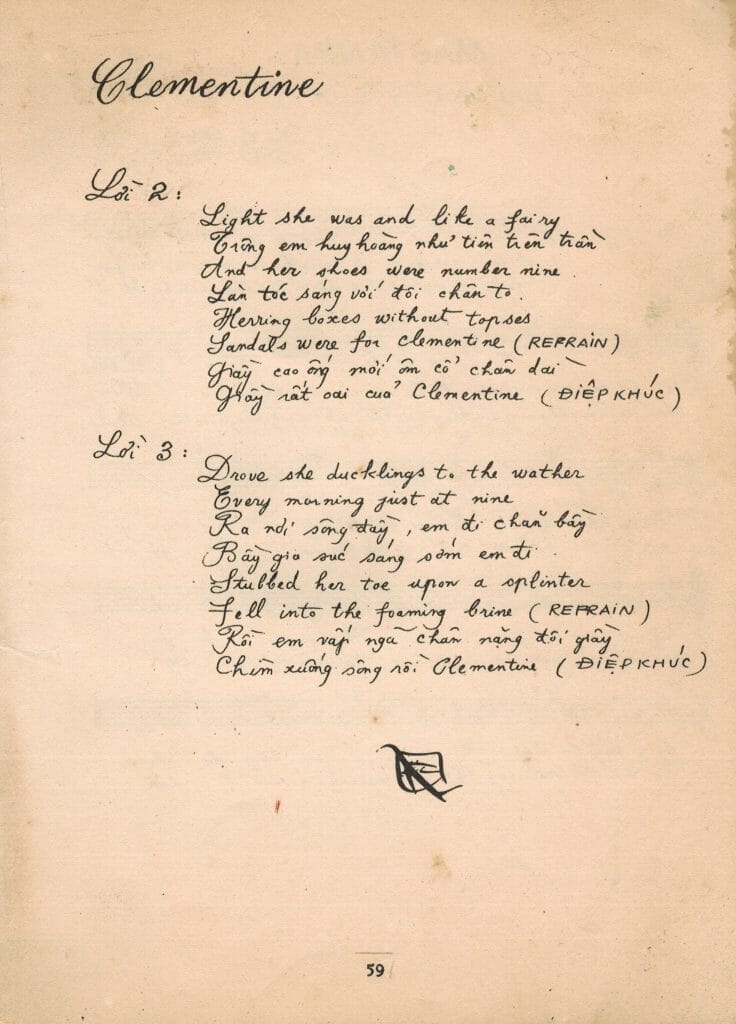 Clementine
Lời 2 :
Light she was and like a fairy
Trông em huy hoàng như tiên trên trần
And her shoes were number nine .
Làn tóc sáng với đôi chân to .
Herring boxes without topses
Sandals were for clementine ( REFRAIN )
Giầy cao ống mới ôm cổ chân dài
Giầy rất oai của Clementine ( ĐIỆP KHÚC )
Lời 3 :
Drove she ducklings to the wather
Every morning just at nine
Ra nơi sông đầy , em đi chăn bầy
Bầy gia súc sáng sớm em đi .
Stubbed her toe upon a splinter
Fell into the foaming brine ( REFRAIN )
Rồi em vấp ngã chân nặng đôi giầy
Chìm xuống sông rồi Clementine ( ĐIỆP KHÚC )
59